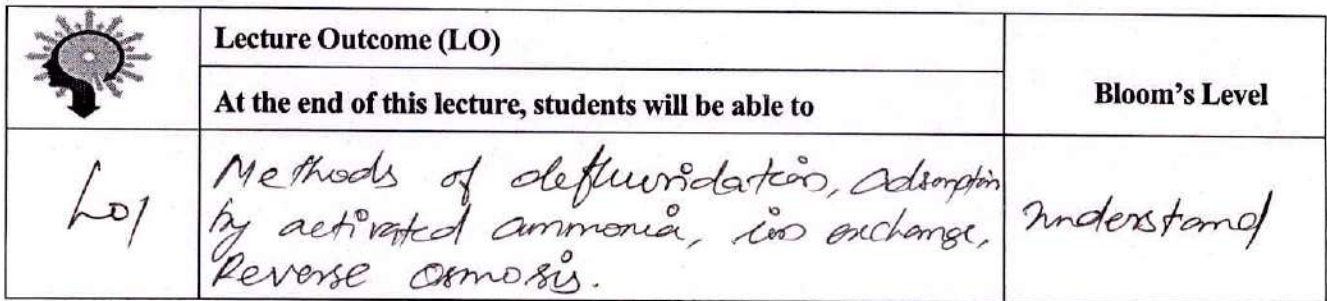 Lecture Outcome (LO)
At the end of this lecture, students will be able to
Bloom's Level
LO1
Methods of defluoridation, Adsorption
by activated ammonia, ion exchange,
Reverse osmosis.
understand